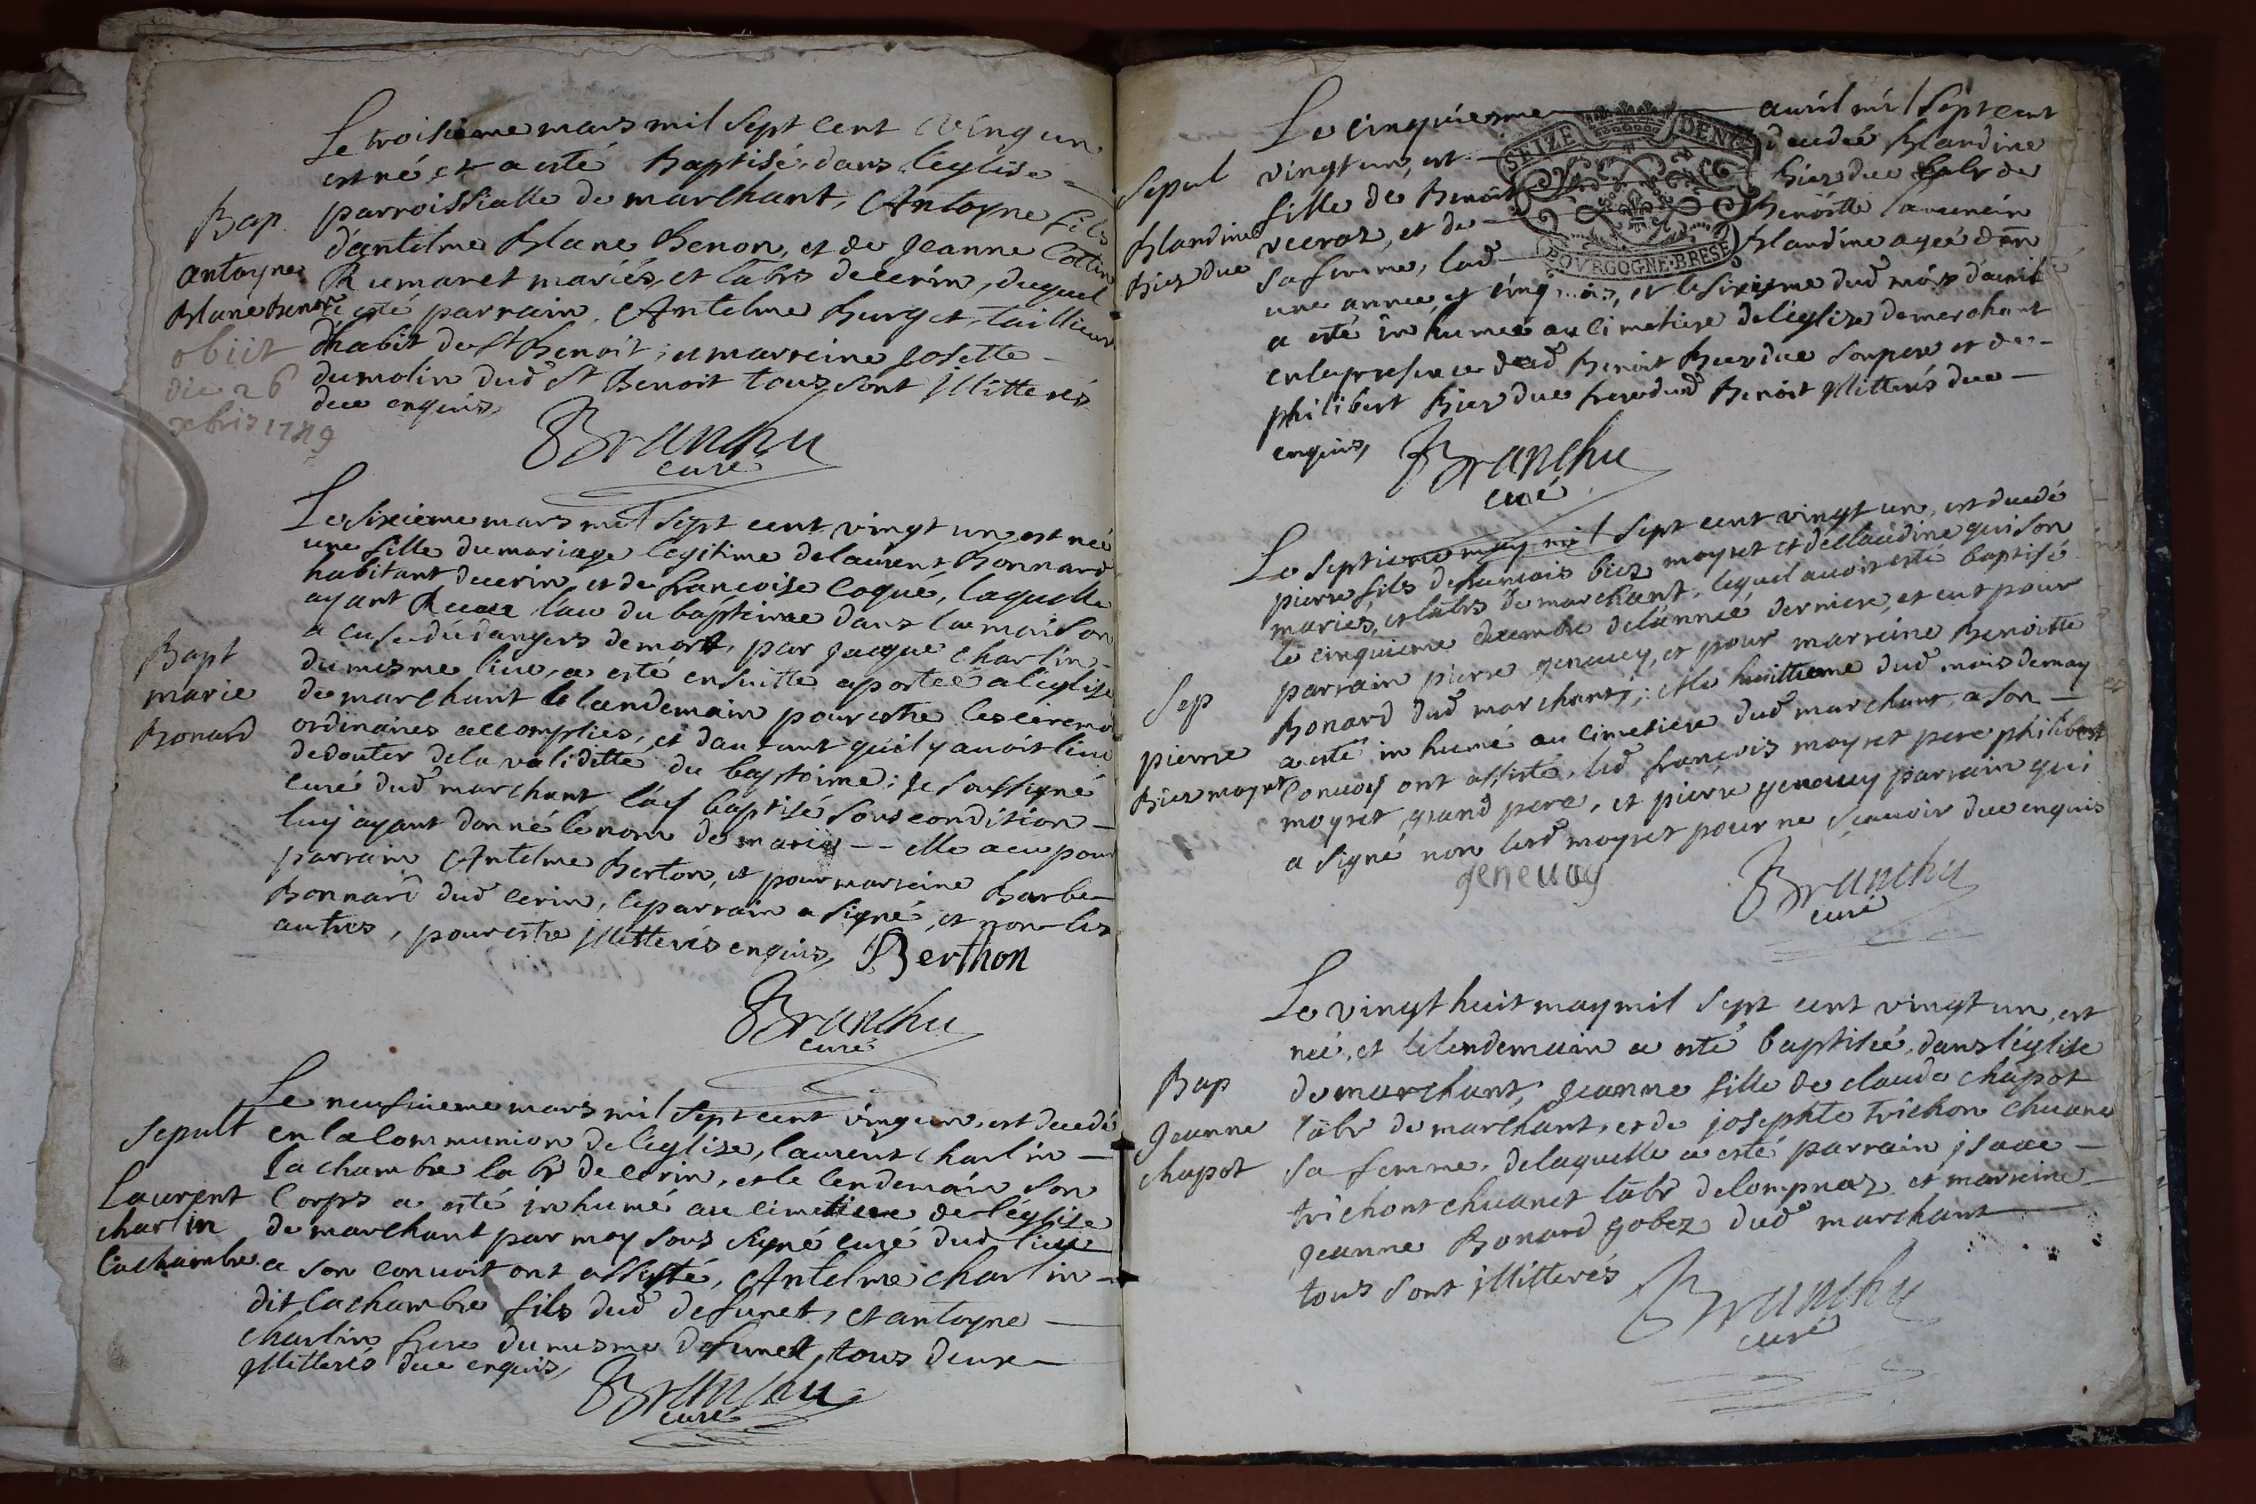 Le troisieme mars mil sept cent vingt un
est né et a esté Baptisé dans l'eglise
parroissialle de marchant, Antoyne fils
d'antelme Blanc Benon, et de Jeanne Cottin
Rumaret mariés, et labrs de cerin, duquel
a esté parrain, Antelme Burget, taillieur
d'habit de st Benoit, et marreine Josette
dumolin dud st Benoit tous sont illitterés
due enquis,
Bap.
antoyne
Blanc benon
obiit
die 26
xbris 1749
Branchu
curé
Le sixieme mars mil sept cent vingt un est neé
une fille du mariage legitime de laurent Bonnard
habitant de cerin, et de francoise Coque, laquelle
ayant Receue l'au du baptime dans la maison
a cause du dangers de mort, par jaque charlin
du mesme lieu, a esté ensuitte aportée a l'eglise
de marchant le landemain pour estre les ceremo
ordinaires accomplies, et dautant qu'il y avoit lieu
de douter de la validitte du baptime; Je soussigné
curé dud marchant l'ay baptisé sous condition
luy ayant donné le nom de marie -- elle a eu pour
parrain Antelme Berton, et pour marreine Barbe
Bonnard dud cerin, le parrain a signé, et non les
autres, pour estre illitterés enquis, Berthon
Bapt
marie
Bonard
Branchu
curé
Le neufvieme mars mil sept cent vingt un, est decedé
en la Communion de l'eglise, laurent charlin
lachambre labr de cerin, et le lendemain son
Corps a esté inhumé au cimetiere de l'eglise
de marchant par moy sous signé curé dud lieu
a son convoit ont assisté, Antelme charlin
dit lachambre fils dud defunct, et antoyne
charlin frere du mesme defunct, tous deux
illitterés due enquis,
Sepult
Laurent
charlin
lachambre
Branchu
curé
Le cinquiesme avril mil sept cent
vingt un, est decedeé Blandine
fille de Benoit Biez due labr de
veeraz, et de Benoitte
sa femme, lad Blandine ageé d'un
une année, et cinq mois, et le sixieme dud mois d'avril
a esté inhumeé au cimetiere de l'eglise de marchant
en la presence dud Benoit Biez due son pere et de
philibert Biez due frere dud Benoit illitterés due
enquis,
Sepul
Blandine
Biez due
SEIZE DEN
BOVRGOGNE·BRESE
Branchu
curé
Le septieme may mil sept cent vingt un, est decedé
pierre fils de francois biez moyret et de claudine quison
mariés, et labrs de marchant, lequel avoit esté baptisé
le cinquieme decembre de l'anneé derniere, et eut pour
parrain pierre genevey, et pour marreine Benoitte
Bonard dud marchant; et le huittieme dud mois de may
a esté inhumé au cimetiere dud marchant, a son
Convoy ont assisté, led francois moyret pere philibert
moyret grand pere, et pierre genevey parrain qui
a signé non lesd moyret pour ne scavoir due enquis
Sep
pierre
Biez moyret
genevay
Branchu
curé
Le vingt huit may mil sept cent vingt un, est
neé, et le lendemain a esté baptiseé, dans l'église
de marchant, Jeanne fille de claude chapot
labr de marchant, et de josephte trichon chuane
sa femme, de laquelle a esté parrain isaac
trichont chuanet labr de lompnaz et marreine
Jeanne Bonard gobez dud marchant
tous sont illitterés
Bap
Jeanne
chapot
Branchu
curé